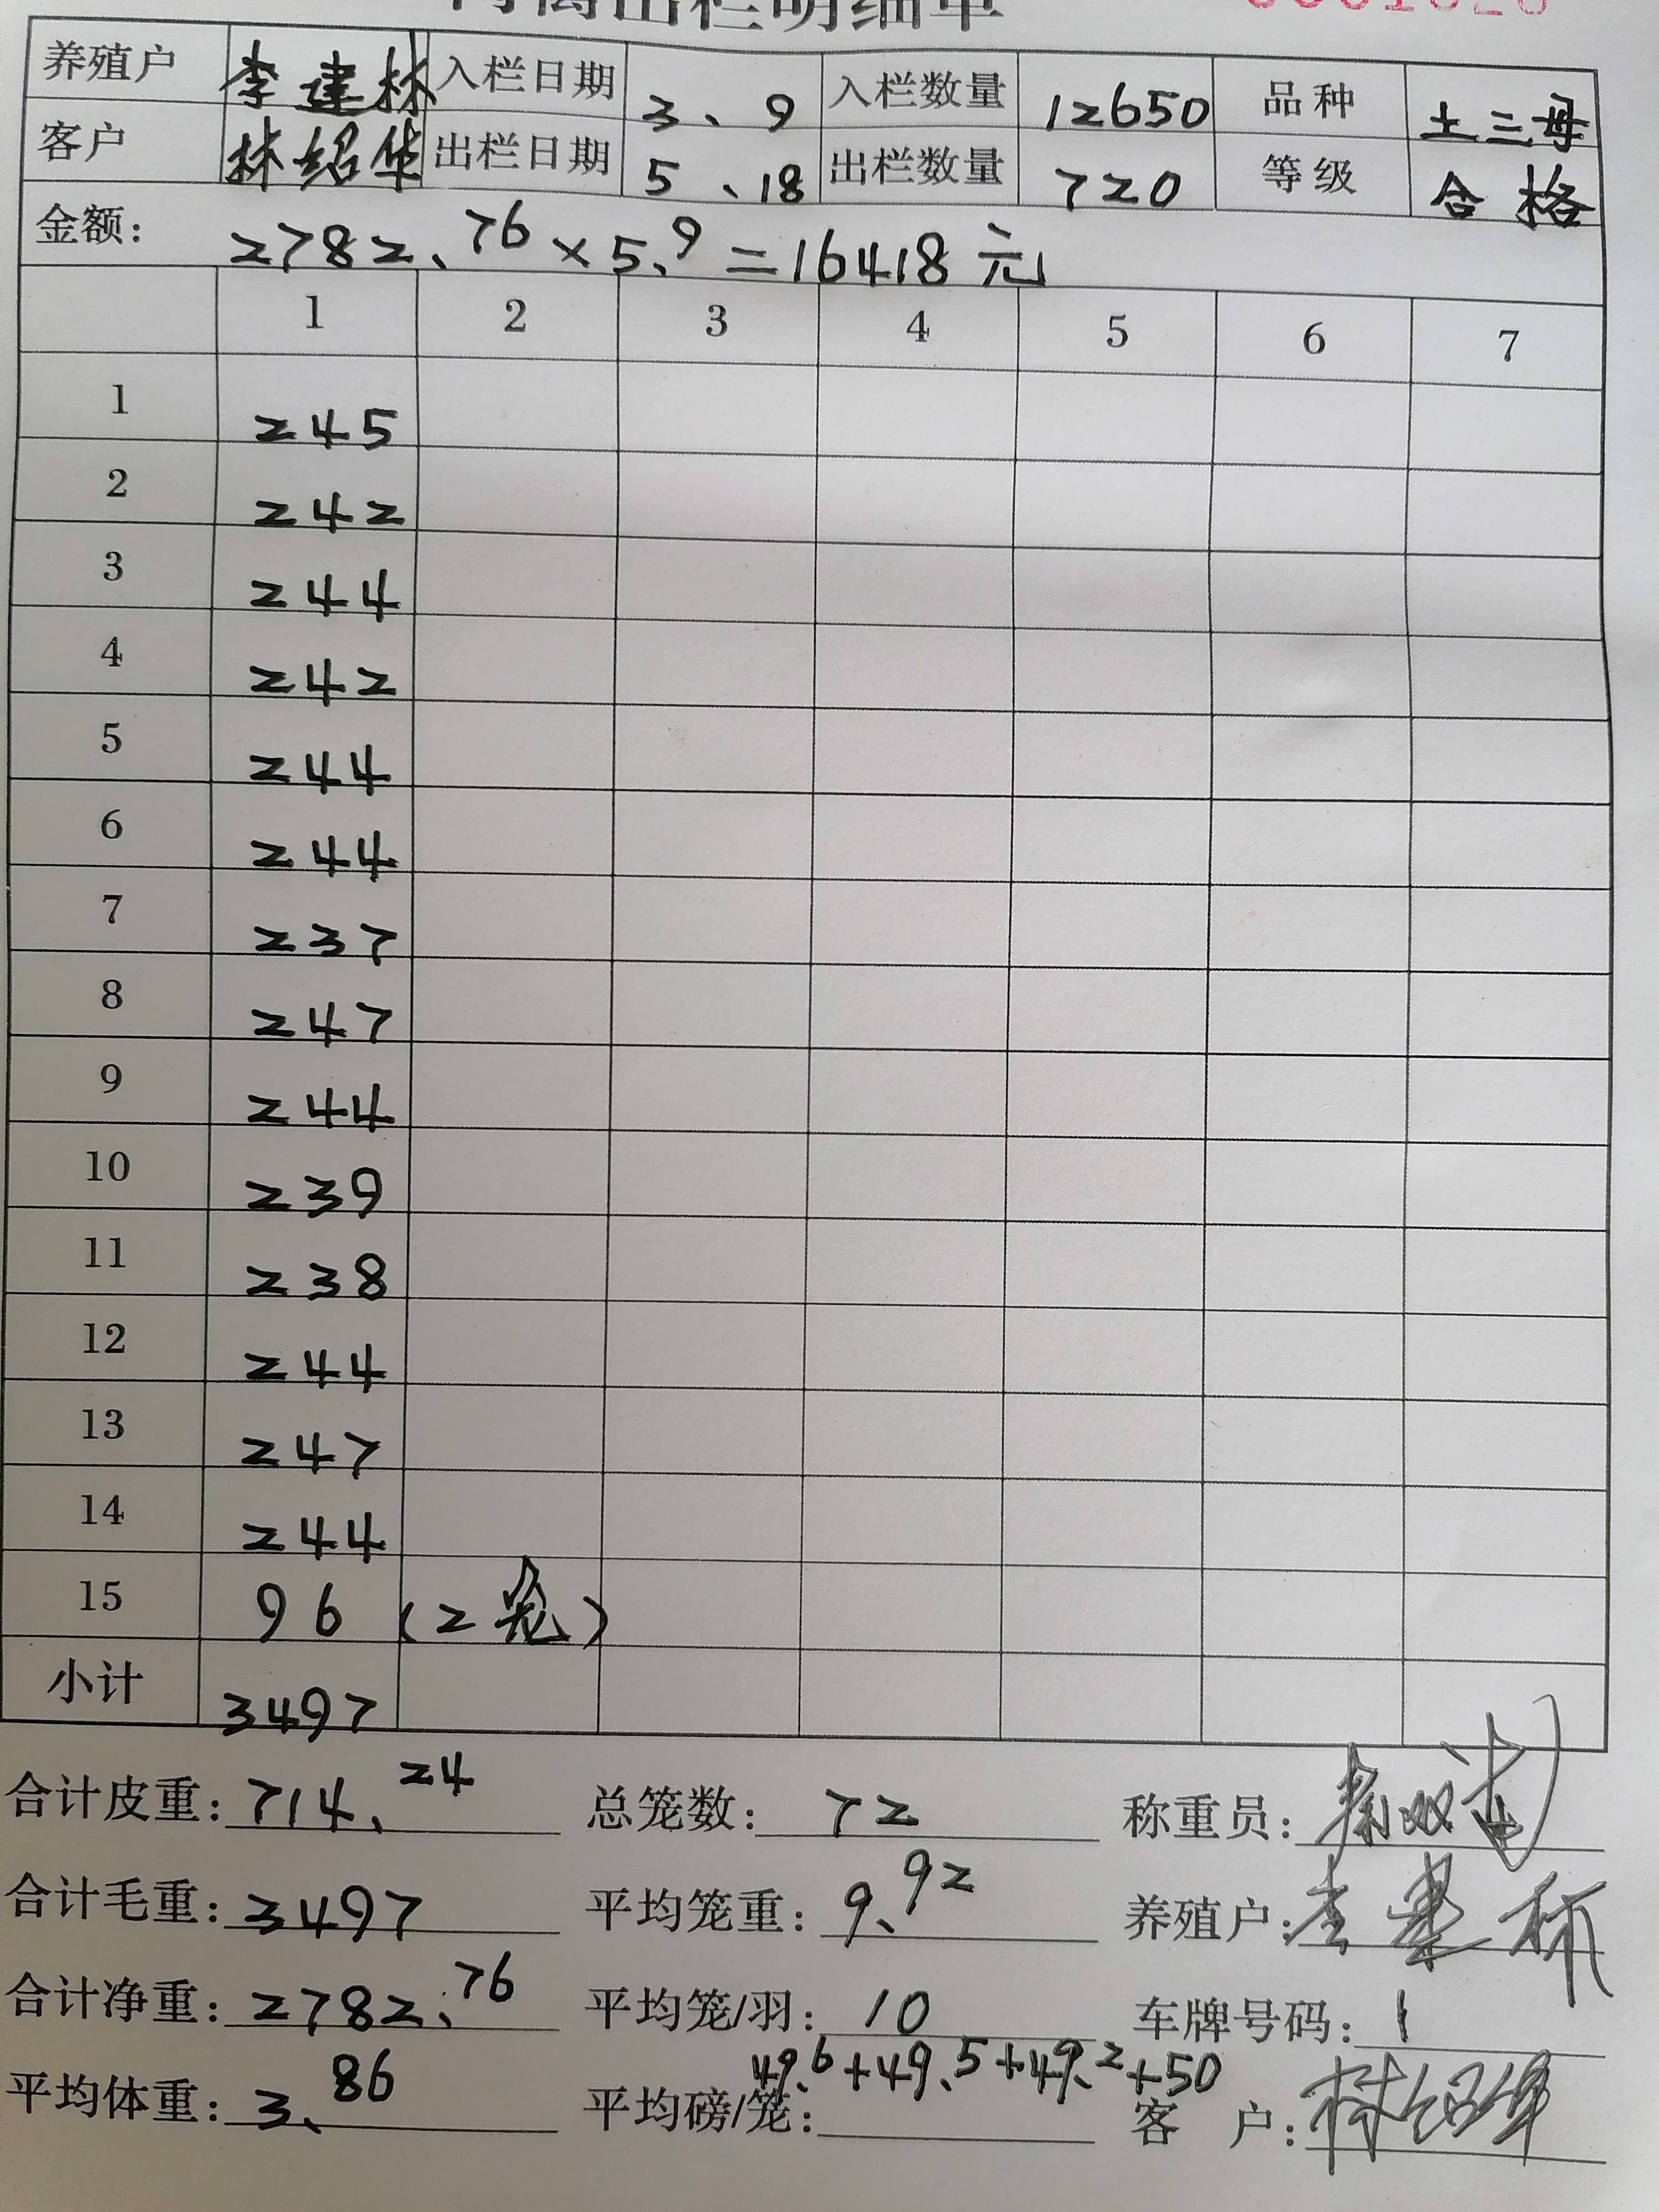 肉禽出栏明细单
养殖户 李建林 入栏日期 3、9 入栏数量 12650 品种 土三母
客户 林绍华 出栏日期 5、18 出栏数量 720 等级 合格
金额: 2782.76×5.9=16418元
1 2 3 4 5 6 7
1 245
2 242
3 244
4 242
5 244
6 244
7 237
8 247
9 244
10 239
11 238
12 244
13 247
14 244
15 96 (2笼)
小计 3497
合计皮重: 714.24 总笼数: 72 称重员:
合计毛重: 3497 平均笼重: 9.92 养殖户: 李建林
合计净重: 2782.76 平均笼/羽: 10 车牌号码: 1
49.6+49.5+49.2+50
平均体重: 3.86 平均磅/笼: 客 户: 林绍华